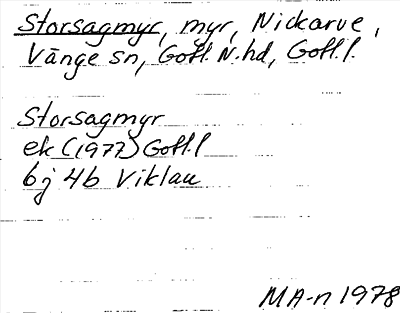 Storsagmyr, myr, Nickarve,
Vänge sn, Gotl. N. hd, Gotl. l.
Storsagmyr
ek (1977) Gotl. l
bj 4b Viklau
MA-n 1978